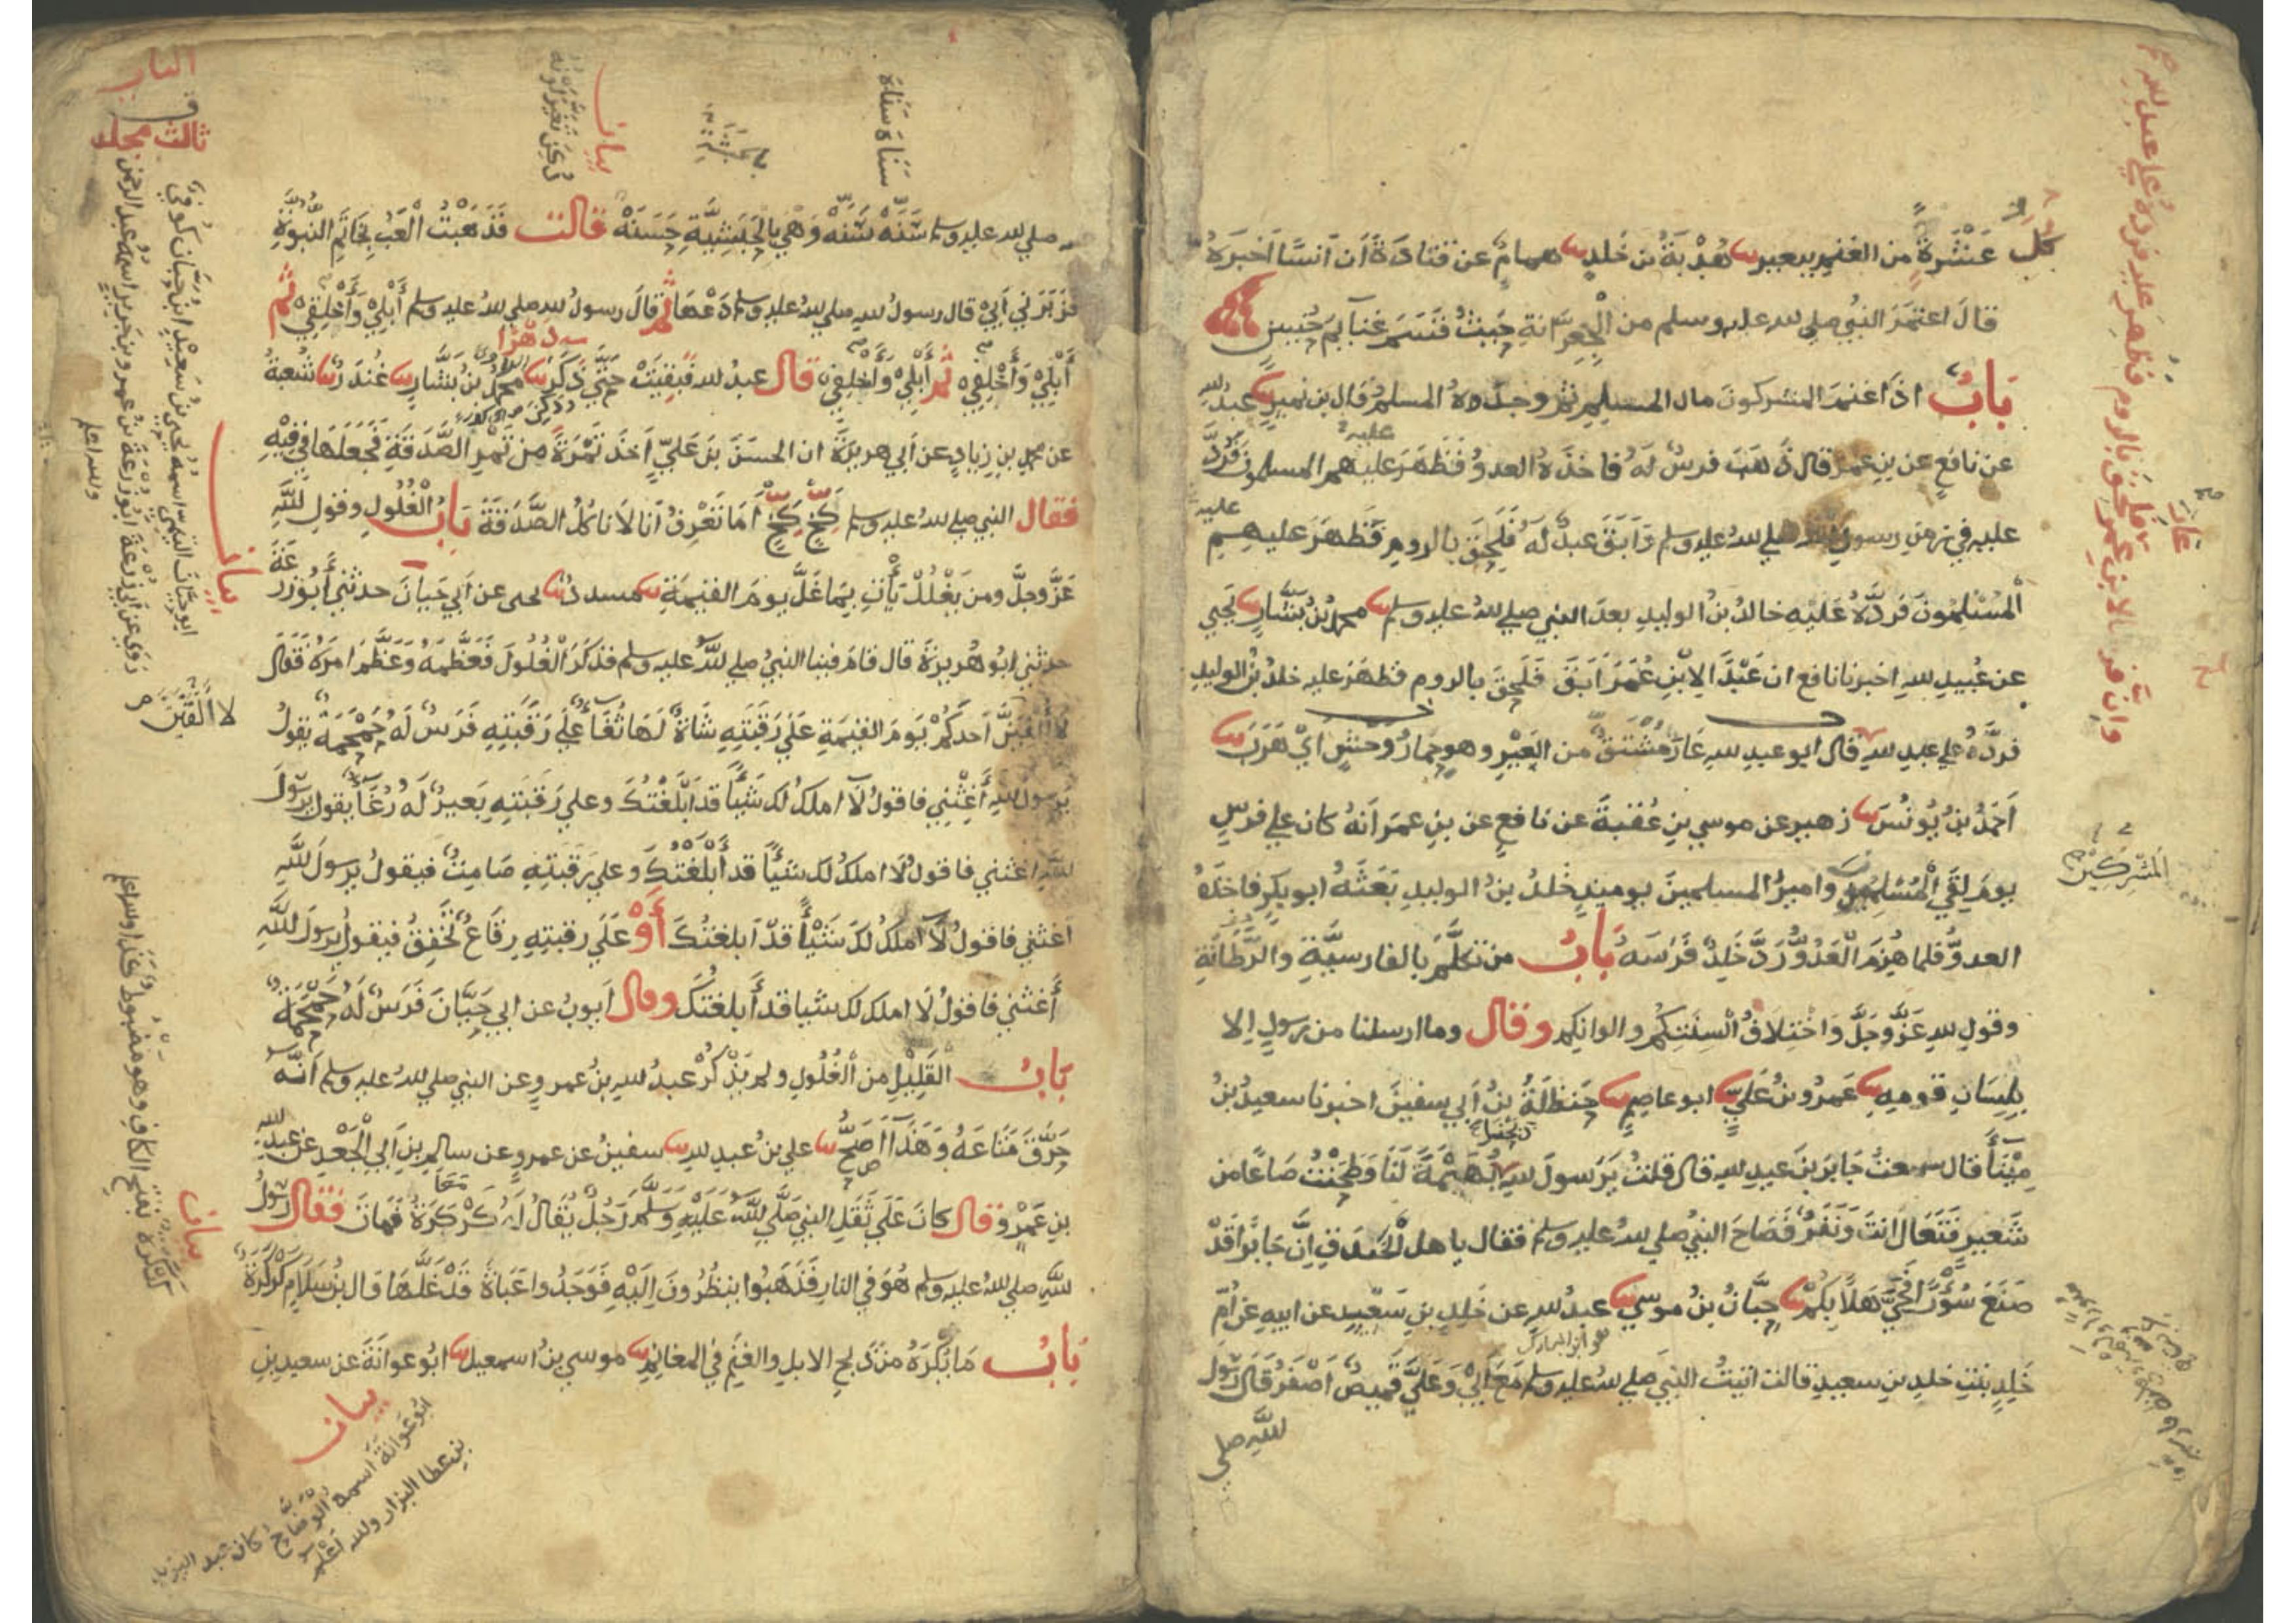 كل عشرة من الغنم ببعير هدبة بن خلد همام عن قتادة أن أنسا أخبره
قال اعتمر النبي صلى لله عليه وسلم من الجعرانة حيث قسم غنايم حنين
باب اذا غنم المشركون مال المسلم ثم وجده المسلم قال بن نمير عبيد لله
عن نافع عن بن عمر قال ذهب فرس له فاخذه العدو فظهر عليهم المسلمون فرد
عليه في زمن رسول لله صلى لله عليه وسلم وابق عبد له فلحق بالروم فظهر عليهم
المسلمون فرده عليه خالد بن الوليد بعد النبي صلي لله عليه وسلم محمد بن بشار يحيي
عن عبيد لله اخبرنا نافع ان عبدا لابن عمر ابق فلحق بالروم فظهر عليه خلد بن الوليد
فرده علي عبد لله قال ابو عبد لله عار مشتق من العير وهو حمار وحش اي هرب
احمد بن يونس زهير عن موسي بن عقبة عن نافع عن بن عمر انه كان علي فرس
يوم لقي المسلمون وامير المسلمين يوميذ خلد بن الوليد بعثه ابو بكر فاخذه
العدو فلما هزم العدو رد خلد فرسه باب من تكلم بالفارسية والرطانة
وقول لله عز وجل واختلاف السنتكم والوانكم وقال وما ارسلنا من رسول الا
بلسان قومه عمرو بن علي ابو عاصم حنظلة بن أبي سفين اخبرنا سعيد بن
مينأ قال سمعت جابر بن عبد لله قال قلت يرسول لله ذبحنا بهيمة لنا وطحنت صاعا من
شعير فتعال انت ونفر فصاح النبي صلي لله عليه وسلم فقال ياهل الخندق إن جابرا قد
صنع سؤرا فحي هلا بكم حبان بن موسي عبد لله عن خلد بن سعيد عن ابيه عن ام
خلد بنت خلد بن سعيد قالت اتيت النبي صلي لله عليه وسلم مع ابي وعلي قميص اصفر قال رسول
لله صلي
المشركين
عار
هو ابن المبارك
لله صلي لله عليه وسلم سنه سنه وهي بالحبشية حسنة قالت فذهبت العب بخاتم النبوة
فزبرني ابي قال رسول لله صلي لله عليه وسلم دعها ثم قال رسول لله صلي لله عليه وسلم أبلي وأخلقي ثم
أبلي وأخلقي ثم أبلي وأخلقي قال عبد لله فبقيت حتي ذكر محمد بن بشار غندر شعبة
عن محمد بن زياد عن أبي هريرة ان الحسن بن علي اخذ تمرة من تمر الصدقة فجعلها في فيه
فقال النبي صلي لله عليه وسلم كخ كخ أما تعرف أنا لا ناكل الصدقة باب الغلول وقول لله
عز وجل ومن يغلل يأت بما غل يوم القيمة مسدد يحيى عن أبي حيان حدثني أبو زرعة
حدثني ابو هريرة قال قام فينا النبي صلي لله عليه وسلم فذكر الغلول فعظمه وعظم امره فقال
لا ألقين أحدكم يوم القيمة علي رقبته شاة لها ثغأ علي رقبته فرس له حمحمة يقول
يرسول لله أغثني فاقول لا املك لك شيأ قد ابلغتك وعلي رقبته بعير له رغأ يقول يرسول
لله اغثني فاقول لا املك لك شيأ قد أبلغتك وعلي رقبته صامت فيقول يرسول لله
اغثني فاقول لا أملك لك شيأ قد ابلغتك أو علي رقبته رقاع تخفق فيقول يرسول لله
أغثني فاقول لا املك لك شيا قد أبلغتك وقال ايوب عن ابي حيان فرس له حمحمة
باب القليل من الغلول ولم يذكر عبد لله بن عمرو عن النبي صلي لله عليه وسلم انه
حرق متاعه وهذا اصح علي بن عبد لله سفين عن عمرو عن سالم بن ابي الجعد عن عبد لله
بن عمرو قال كان علي ثقل النبي صلي لله عليه وسلم رجل يقال له كركرة فمات فقال رسول
لله صلي لله عليه وسلم هو في النار فذهبوا ينظرون اليه فوجدوا عباة قد غلها قال بن سلام كركرة
باب ما يكره من ذبح الابل والغنم في المغانم موسي بن اسمعيل ابو عوانة عن سعيد بن
بيان
ابو عوانة اسمه الوضاح كان عبد
بن عطا البزار ولله اعلم
لا ألقين
بيان
كركرة بفتح الكاف وهو مضبوط كذا
بيان
ابو حيان التيمي اسمه يحيي بن سعيد ابن حيان كوفي
روي عن ابي زرعة ابو زرعة بن عمرو بن جرير اسمه عبد الرحمن
ولله اعلم
ثالث مجلد
بيان
سناه سناه